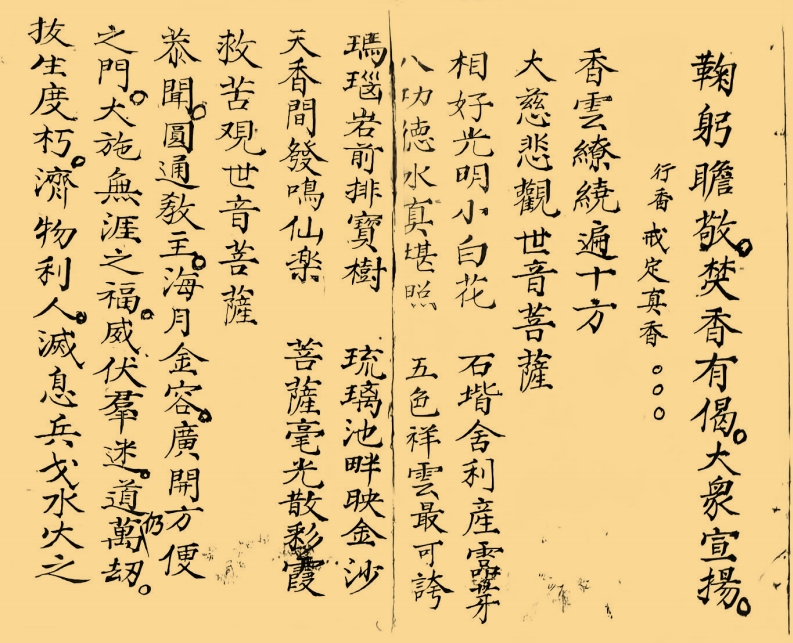 鞠躬瞻敬。焚香有偈。大衆宣揚。
行香 戒定真香 。。。
香雲繚繞遍十方
大慈悲觀世音菩薩
相好光明小白花 石堦舍利産靈芽
八功徳水真堪照 五色祥雲最可誇
瑪瑙岩前排寶樹 琉璃池畔映金沙
天香間發鳴仙楽 菩薩毫光散彩霞
救苦观世音菩薩
恭聞。圓通教主。海月金容。廣開方便
之門。大施無涯之福。威伏羣迷。道仍萬刼。
拔生度朽。濟物利人。滅息兵戈水火之